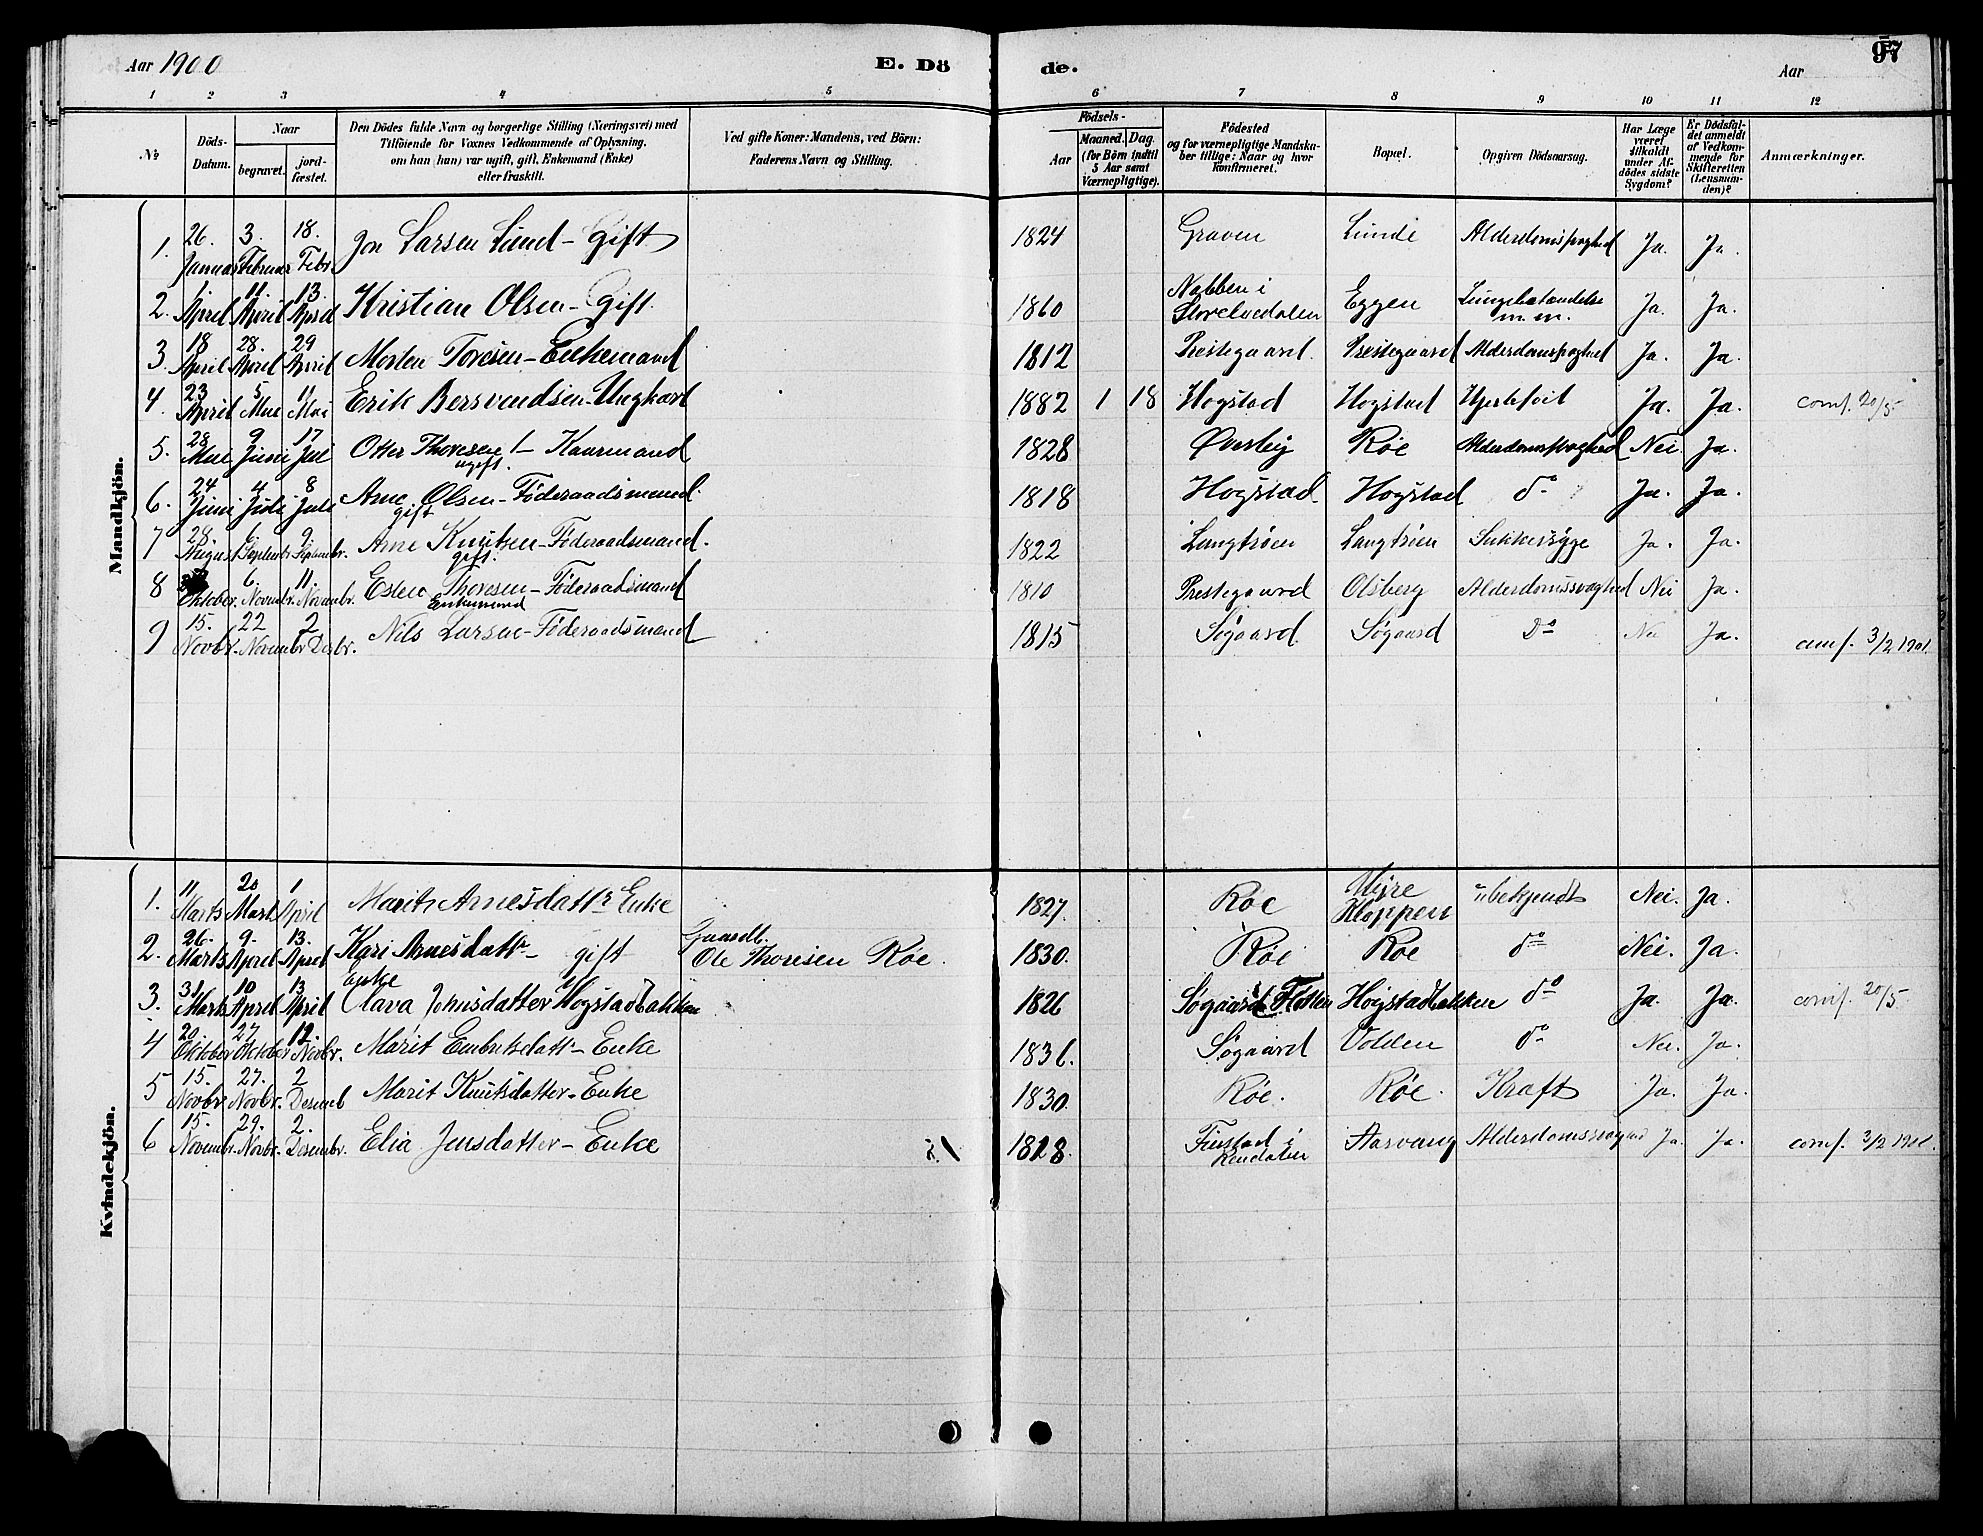 Aar 1900
E. Dö
de.
Aar
97
1 2 3 4 5 6 7 8 9 10 11 12
№
Döds-Datum.
Naar
begravet.
jord-fæstet.
Den Dödes fulde Navn og borgerlige Stilling (Næringsvei) med
Tilföiende for Voxnes Vedkommende af Oplysning,
om han (hun) var ugift, gift, Enkemand (Enke)
eller fraskilt.
Ved gifte Koner: Mandens, ved Börn:
Faderens Navn og Stilling.
Födsels-
Aar
Maaned. Dag.
(for Börn indtil
5 Aar samt
Værnepligtige).
Födested
og for værnepligtige Mandska-
ber tillige: Naar og hvor
Konfirmeret.
Bopæl.
Opgiven Dödsaarsag.
Har Læge
været
tilkaldt
under Af-
dödes sidste
Sygdom?
Er Dödsfal-
det anmeldt
af Vedkom-
mende for
Skifteretten
(Lensman-
den)?
Anmærkninger.
Mandkjön.
1. 26. Januar 3. Februar 18. Febr. Jon Larsen Lund - Gift 1824 Graven Lunde Alderdomssvaghed Ja. Ja.
2. 1. April 11. April 13. April Kristian Olsen - Gift. 1860 Nabben i Storelvedalen Eggen Lungebetændelse m. m. Ja. Ja.
3. 18 April 28. April 29 April Morten Toresen - Enkemand 1812 Prestegaard. Prestegaard Alderdomssvaghed Ja. Ja.
4. 23 April 5 Mai 11 Mai Erik Bersvendsen - Ungkarl 1882 1 18 Hogstad Hogstad Hjertefeil Ja. Ja. conf. 20/5
5. 28 Mai 9 Juni 17 Jul Otter Thoresen - Kaarmand ugift. 1828 Øverby Røe Alderdomssvaghed Nei Ja.
6. 24 Juni 4 Juli 8 Juli Arne Olsen - Föderaadsmand. gift 1818 Hogstad Hogstad do Ja. Ja.
7 28. August 6. Septembr 9. Septembr. Arne Knutsen - Föderaadsmand. gift. 1822 Langtrøen Langtrøen Sukkersyge Ja. Ja.
8 Oktober. 6. Novembr. 11. Novembr. Esten Thoresen - Föderaadsmand Enkemand 1810 Prestegaard Olsberg Alderdomssvaghed Nei Ja.
9 15. Novbr. 22 Novembr 2 Desbr. Nils Larsen - Föderaadsmand 1815 Søgaard. Søgaard Do Nei Ja. conf. 3/2 1901.
Kvindekjön.
1. 11 Marts 20 Mart 1 April Marit Arnesdattr Enke 1827. Røe Myre Kloppen ubekjendt Nei. Ja.
2. 26. Marts 9. April 13. April Kari Arnesdattr - gift Gaardb. Ole Thoresen Røe. 1830. Røe Røe do Nei. Ja.
3. 31 Marts 10 April 13 April Enke Olava Jonsdatter Hogstadbakken 1826 Søgaard Floten Hogstadbakken do Ja. Ja. conf. 20/5
4 20. Oktober 27 Oktober 12. Novbr. Marit Embretsdattr - Enke 1836. Søgaard Volden do Nei. Ja.
5 15. Novbr 27. Novbr. 2 Desemb Marit Knutsdatter - Enke 1830. Røe. Røe. Kræft Ja. Ja.
6 15. Novembr. 29. Novbr. 2. Desembr. Elia Jensdatter - Enke 1828. Finstad i Rendalen Aasvang Alderdomssvaghed Ja. Ja. conf. 3/2 1901.